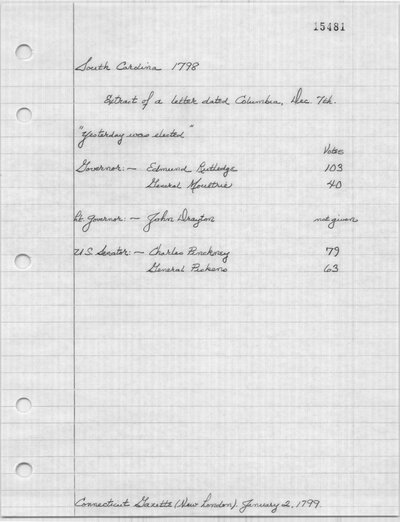 15481
South Carolina 1798
Extract of a letter dated Columbia, Dec. 7th.
"Yesterday was elected"
Votes
Governor:— Edmund Rutledge 103
General Moultrie 40
Lt. Governor:— John Drayton not given
U.S. Senator:— Charles Pinckney 79
General Pickens 63
Connecticut Gazette (New London). January 2, 1799.